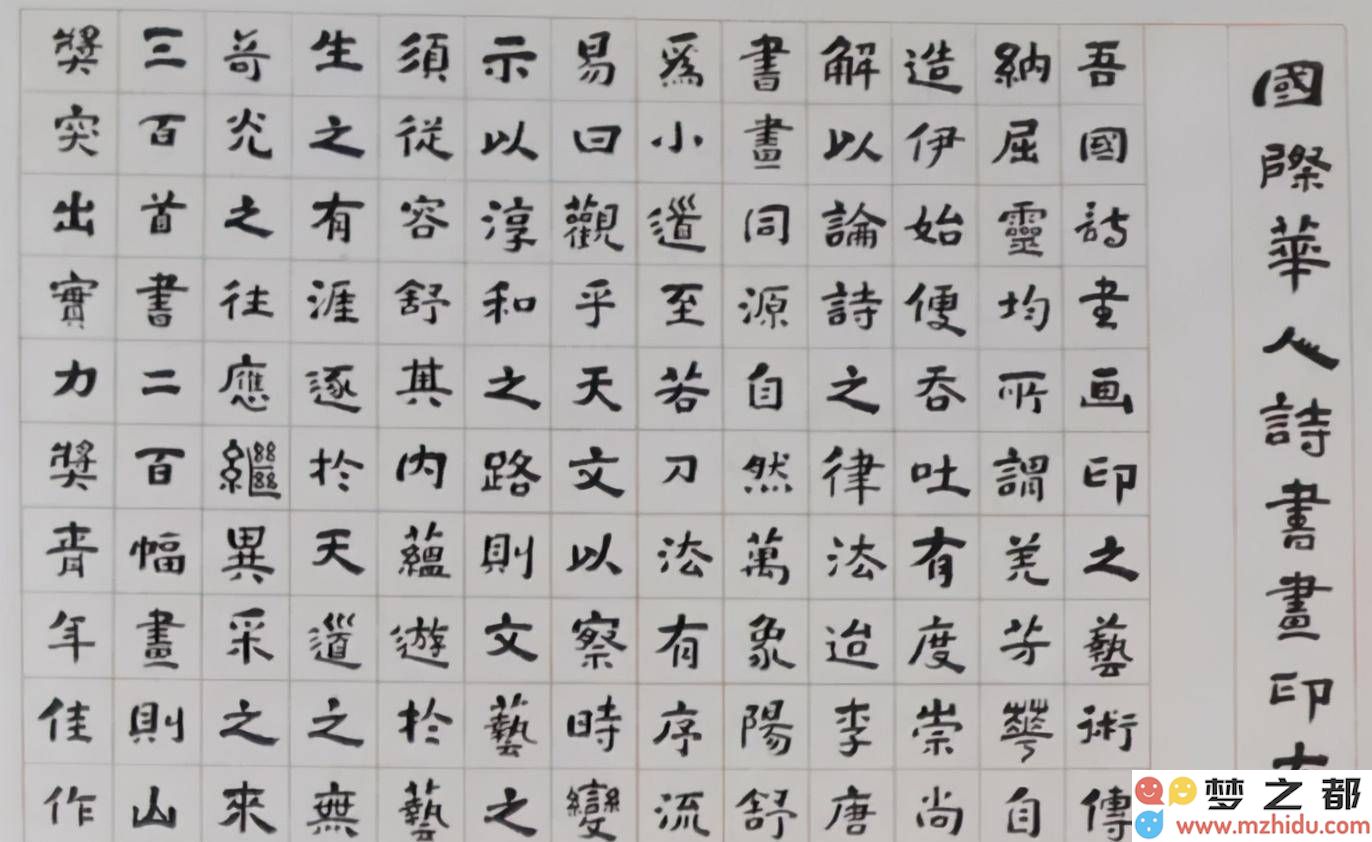 國際華人詩書畫印
吾國詩書画印之藝術傳
納屈靈均所謂羌芳華自
造伊始便吞吐有度崇尚
解以論詩之律法迨李唐
書畫同源自然萬象陽舒
爲小道至若刀法有序流
易曰觀乎天文以察時變
示以淳和之路則文藝之
須從容舒其内蘊遊於藝
生之有涯逐於天道之無
奇光之往應繼異采之來
三百首書二百幅畫則山
獎突出實力獎青年佳作
梦之都
www.mzhidu.com